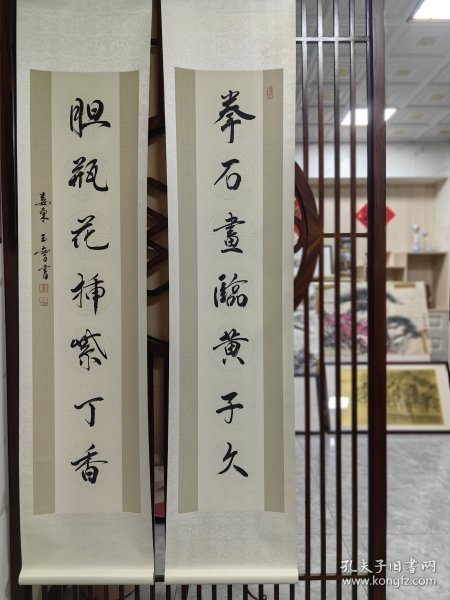 拳石画临黄子久
胆瓶花插紫丁香
孔夫子旧书网
www.kongfz.com